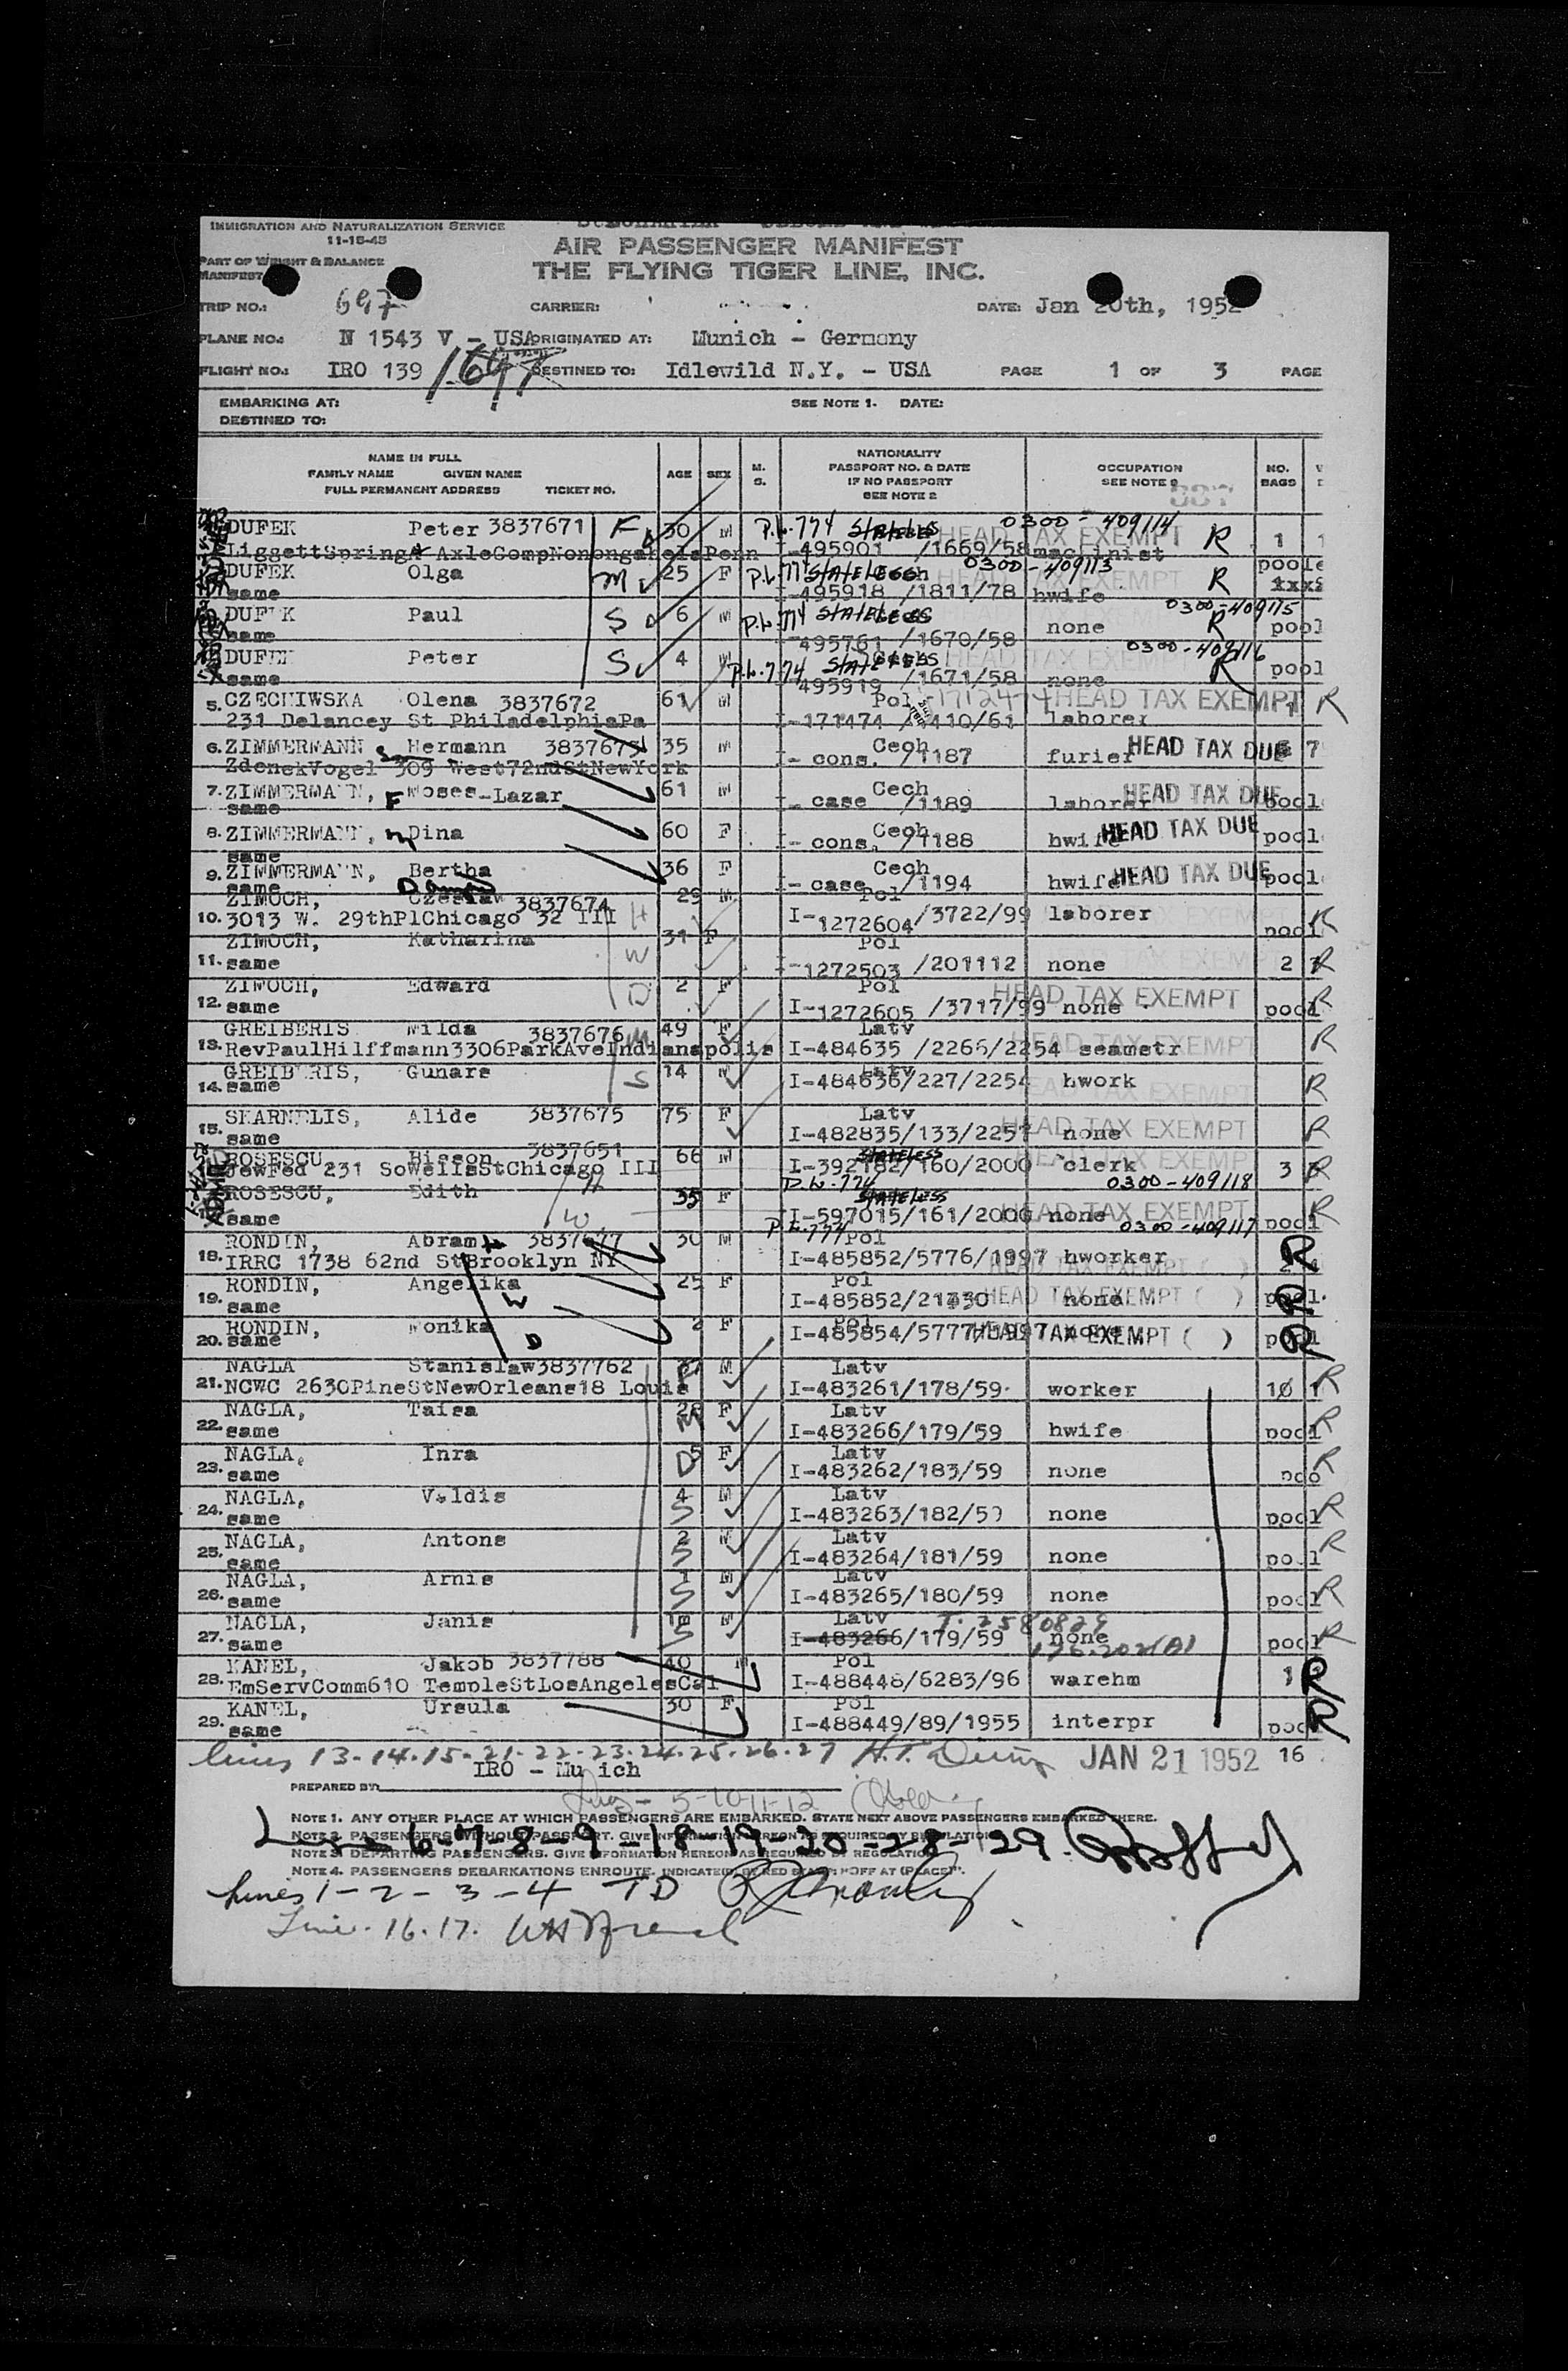 IMMIGRATION AND NATURALIZATION SERVICE
11-15-45
AIR PASSENGER MANIFEST
PART OF WEIGHT & BALANCE
MANIFEST
THE FLYING TIGER LINE, INC.
TRIP NO.: 697 CARRIER: DATE: Jan 20th, 1952
PLANE NO.: N 1543 V - USA ORIGINATED AT: Munich - Germany
FLIGHT NO.: IRO 139 / 697 DESTINED TO: Idlewild N.Y. - USA PAGE 1 OF 3 PAGE
EMBARKING AT: SEE NOTE 1. DATE:
DESTINED TO:
NAME IN FULL
FAMILY NAME GIVEN NAME
FULL PERMANENT ADDRESS TICKET NO.
AGE SEX M. S.
NATIONALITY
PASSPORT NO. & DATE
IF NO PASSPORT
SEE NOTE 2
OCCUPATION
SEE NOTE 2
NO.
BAGS
DUFEK Peter 3837671 F 30 M P.L. 774 STATELESS 0300-409114 HEAD TAX EXEMPT R 1
LiggettSpring& AxleCompNonongahelaPenn I-495901 /1669/58 machinist
DUFEK Olga M 25 F P.L. 774 STATELESS 0300-409113 HEAD TAX EXEMPT R
same I-495918 /1811/78 hwife
DUFEK Paul S 6 M P.L. 774 STATELESS 0300-409115 R
same 495761 /1670/58 none pool
DUFEK Peter S 4 M P.L. 774 STATELESS HEAD TAX EXEMPT 0300-409116 R
same 495919 /1671/58 none pool
5. CZECHIWSKA Olena 3837672 61 M Pol 1712474 HEAD TAX EXEMPT R
231 Delancey St PhiladelphiaPa I-171474 /1410/61 laborer
6. ZIMMERMANN Hermann 3837673 35 M Cech HEAD TAX DUE
ZdenekVogel 309 West72ndStNewYork I- cons. /1187 furier
7. ZIMMERMANN, F Moses-Lazar 61 M Cech HEAD TAX DUE
same I- case /1189 laborer pool
8. ZIMMERMANN, M Dina 60 F Cech HEAD TAX DUE
same I- cons. /1188 hwife pool
9. ZIMMERMANN, Bertha 36 F Cech HEAD TAX DUE
same I- case /1194 hwife pool
ZIMOCH, Czeslaw 3837674 29 M Pol
10. 3013 W. 29thPlChicago 32 III H I-1272604 /3722/99 laborer pool R
ZIMOCH, Katharina 31 F Pol
11. same W I-1272503 /201112 none 2 R
ZIMOCH, Edward 2 F Pol HEAD TAX EXEMPT
12. same D I-1272605 /3717/99 none pool R
GREIBERIS Milda 3837676 M 49 F Latv
13. RevPaulHilffmann3306ParkAveIndianapolis I-484635 /2266/2254 seamstr HEAD TAX EXEMPT R
GREIBERIS, Gunars S 14 M Latv
14. same I-484636/227/2254 hwork HEAD TAX EXEMPT R
SKARNELIS, Alide 3837675 75 F Latv
15. same I-482835/133/2251 none HEAD TAX EXEMPT R
ROSESCU Bisson 3837651 66 M STATELESS
JewFed 231 SoWellsStChicago III H I-392182/160/2000 clerk 3 R
P.L. 774 0300-409118
ROSESCU, Edith 35 F STATELESS
same W I-597015/161/2000 none HEAD TAX EXEMPT pool R
P.L. 774 0300-409117
RONDIN, Abram H 3837677 30 M Pol
18. IRRC 1738 62nd StBrooklyn NY I-485852/5776/1997 hworker HEAD TAX EXEMPT ( ) R
RONDIN, Angelika 25 F Pol
19. same W I-485852/21330 none HEAD TAX EXEMPT ( ) pool. R
RONDIN, Monika 2 F Pol
20. same D I-485854/5777/1997 none HEAD TAX EXEMPT ( ) pool R
NAGLA Stanislaw3837762 F M Latv
21. NCWC 2630PineStNewOrleans18 Louis I-483261/178/59 worker 10 R
NAGLA, Taisa 28 M F Latv
22. same I-483266/179/59 hwife pool R
NAGLA, Inra D 5 F Latv
23. same I-483262/183/59 none poo R
NAGLA, Valdis 4 M Latv
24. same S I-483263/182/59 none pool R
NAGLA, Antons 2 M Latv
25. same S I-483264/181/59 none pool R
NAGLA, Arnis 1 M Latv
26. same S I-483265/180/59 none pool R
NAGLA, Janis 1m M Latv T-2580829
27. same S I-483266/179/59 none 176.202(A) pool R
KANEL, Jakob 3837788 40 M Pol
28. EmServComm610 TempleStLosAngelesCal I-488448/6283/96 warehm 1 R
KANEL, Ursula 30 F Pol
29. same I-488449/89/1955 interpr pool R
lines 13-14-15-21-22-23-24-25-26-27 JAN 21 1952 16
IRO - Munich
PREPARED BY:
5-10-11-12
NOTE 1. ANY OTHER PLACE AT WHICH PASSENGERS ARE EMBARKED. STATE NEXT ABOVE PASSENGERS EMBARKED THERE.
NOTE 2. PASSENGERS WITHOUT PASSPORT. GIVE INFORMATION HEREON AS REQUIRED BY REGULATION.
6-7-8-9-18-19-20-28-29.
NOTE 3. DEPARTING PASSENGERS. GIVE INFORMATION HEREON AS REQUIRED BY REGULATION.
NOTE 4. PASSENGERS DEBARKATIONS ENROUTE. INDICATED BY RED STAMP: "OFF AT (PLACE)".
Lines 1-2-3-4 TD
Line. 16.17.